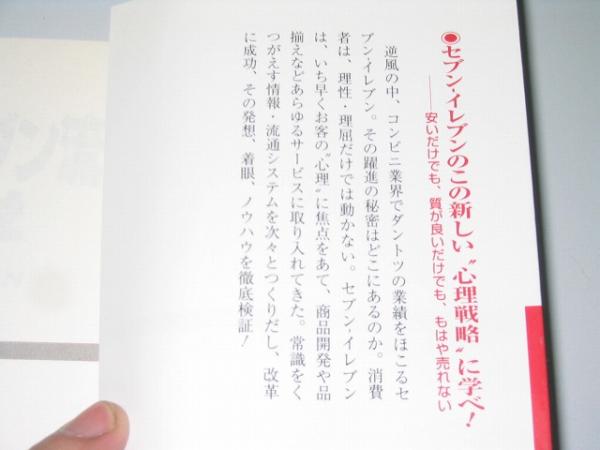 ◉セブン-イレブンのこの新しい〝心理戦略〟に学べ!
——安いだけでも、質が良いだけでも、もはや売れない
逆風の中、コンビニ業界でダントツの業績をほこるセ
ブン-イレブン。その躍進の秘密はどこにあるのか。消費
者は、理性・理屈だけでは動かない。セブン-イレブン
は、いち早くお客の〝心理〟に焦点をあて、商品開発や品
揃えなどあらゆるサービスに取り入れてきた。常識をく
つがえす情報・流通システムを次々とつくりだし、改革
に成功、その発想、着眼、ノウハウを徹底検証!